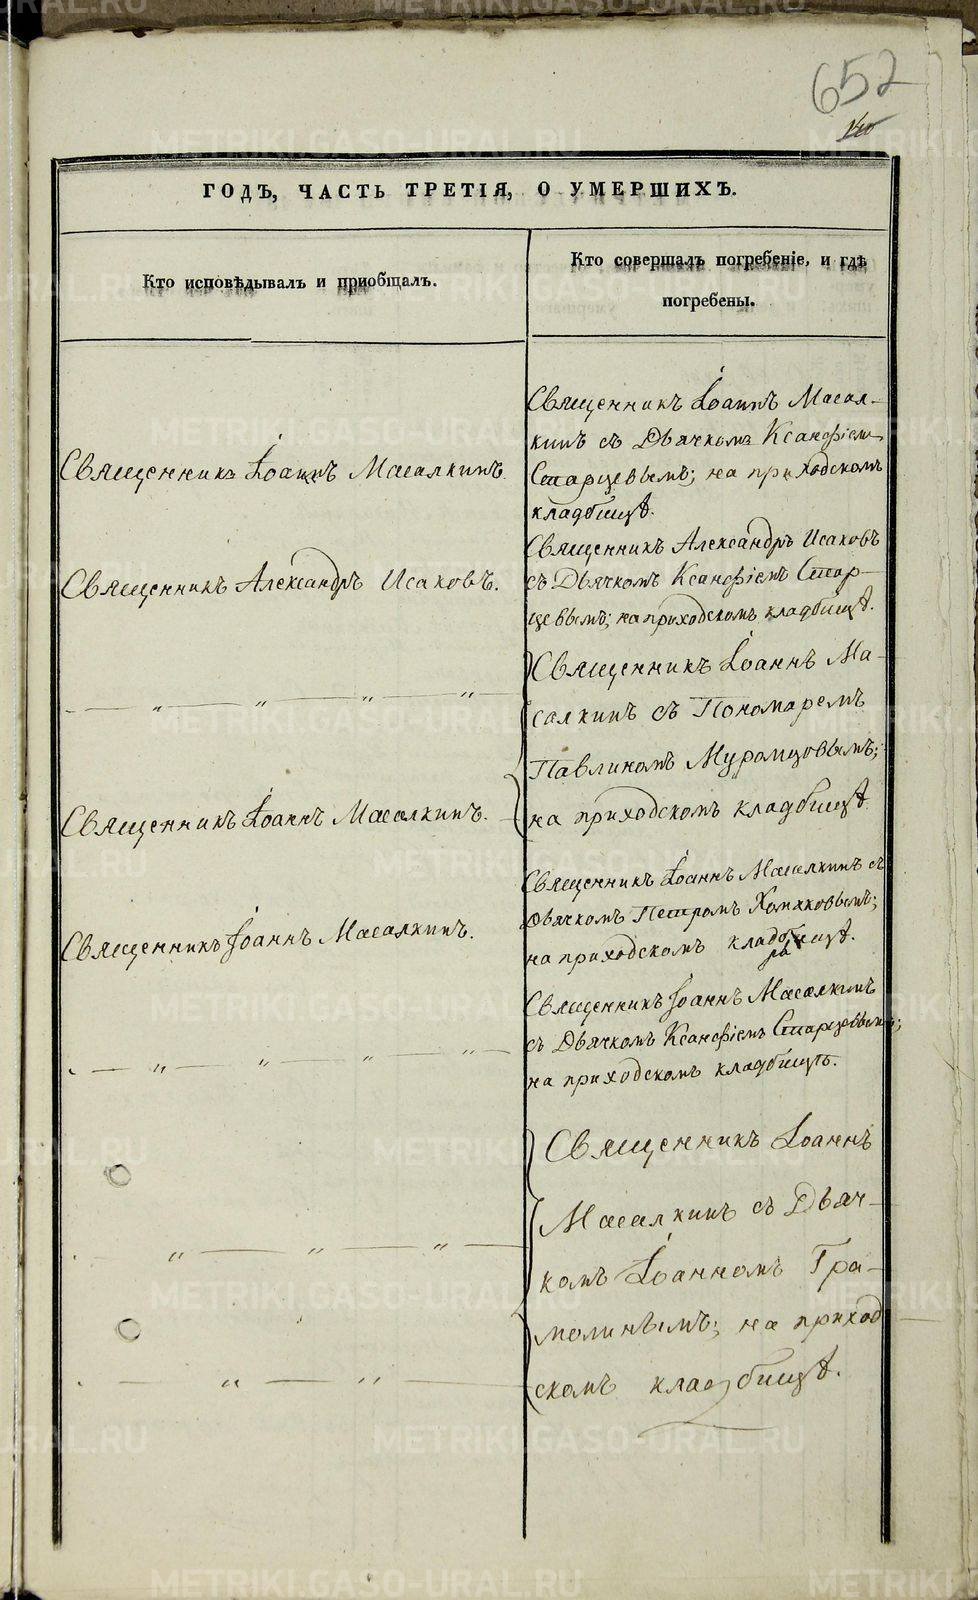 652
ГОДЪ, ЧАСТЬ ТРЕТІЯ, О УМЕРШИХЪ.
Кто исповѣдывалъ и приобщалъ.
Кто совершалъ погребеніе, и гдѣ
погребены.
Священникъ Іоаннъ Масалкинъ.
Священникъ Іоаннъ Масал-
кинъ съ Дьячкомъ Ксанфіемъ
Старцевымъ; на приходскомъ
кладбищѣ.
Священникъ Александръ Исаковъ.
Священникъ Александръ Исаковъ
съ Дьячкомъ Ксанфіемъ Стар-
цевымъ; на приходскомъ кладбищѣ.
— „ — „ — „ — „ —
Священникъ Іоаннъ Ма-
салкинъ съ Пономаремъ
Павлиномъ Муромцовымъ;
на приходскомъ кладбищѣ
Священникъ Іоаннъ Масалкинъ.
Священникъ Іоаннъ Масалкинъ.
Священникъ Іоаннъ Масалкинъ съ
Дьячкомъ Петромъ Хомяковымъ;
на приходскомъ кладбищѣ.
— „ — „ — „ — „ —
Священникъ Іоаннъ Масалкинъ
съ Дьячкомъ Ксанфіемъ Старцовымъ;
на приходскомъ кладбищѣ.
— „ — „ — „ —
— „ — „ —
Священникъ Іоаннъ
Масалкинъ съ Дьяч-
комъ Іоанномъ Гра-
молинымъ; на приход
скомъ кладбищѣ.
METRIKI.GASO-URAL.RU